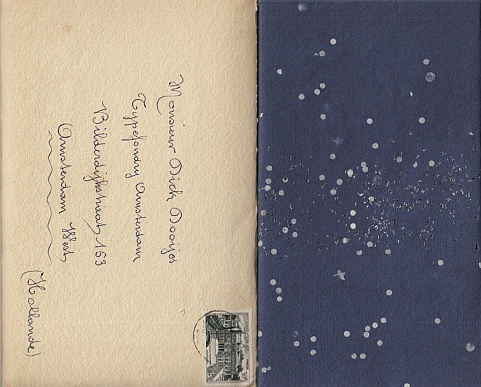 Monsieur Dick Dooijes
Typefondry Amsterdam
Bilderdijkstraat 163
Amsterdam West
(Hollande)